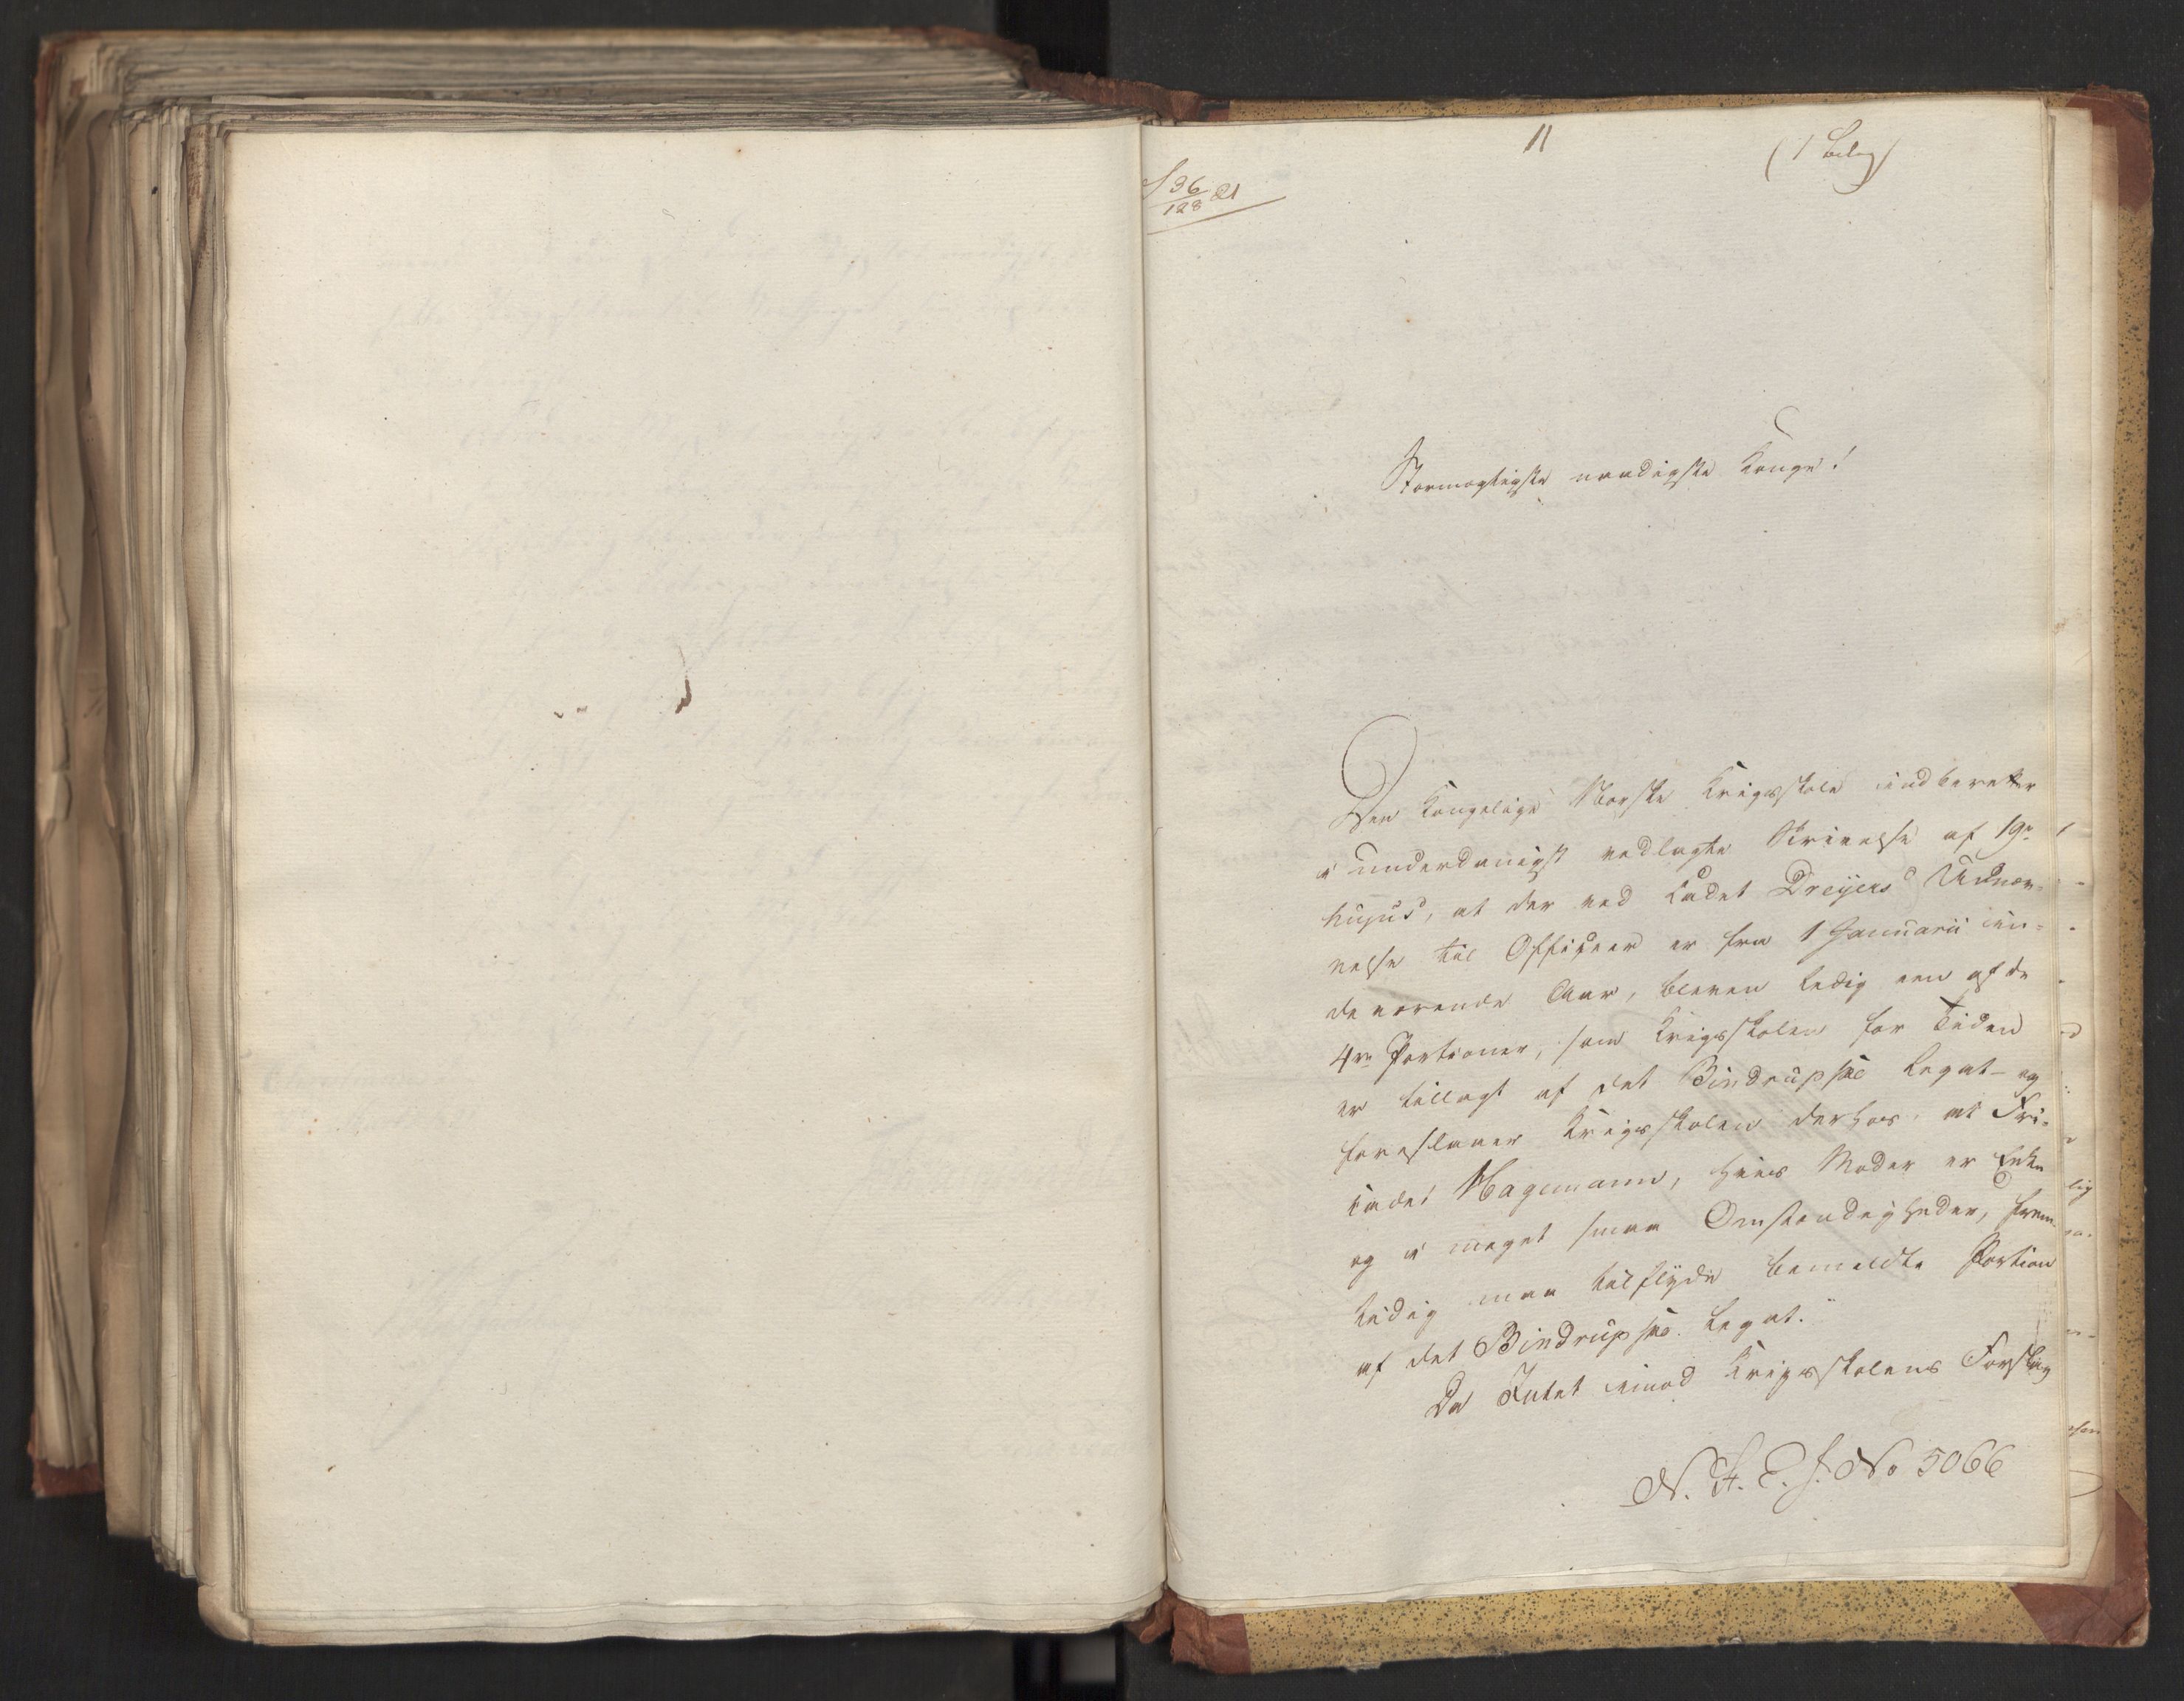 11
(1 Bilag)
S 36/128 21
Stormægtigste naadigste Konge!
Den Kongelige Norske Krigsskole indberetter
i underdanigst vedlagte Skrivelse af 19de
hujus, at der ved Cadet Dreÿers Udnæv-
nelse til Officeer er fra 1 Januarii inde-
deværende Aar, bleven ledig een af de
4re Portioner, som Krigsskolen for Tiden
er tillagt af det Bindrupske Legat - og
foreslaaer Krigsskolen derhos, at Fri-
cadet Hagemann, hvis Moder er Enke
og i meget smaa Omstændigheder, frem-
tidig maa tilflÿde bemeldte Portion
af det Bindrupske Legat.
Da Intet imod Krigsskolens Forslag
N. A. C. f. No 5066